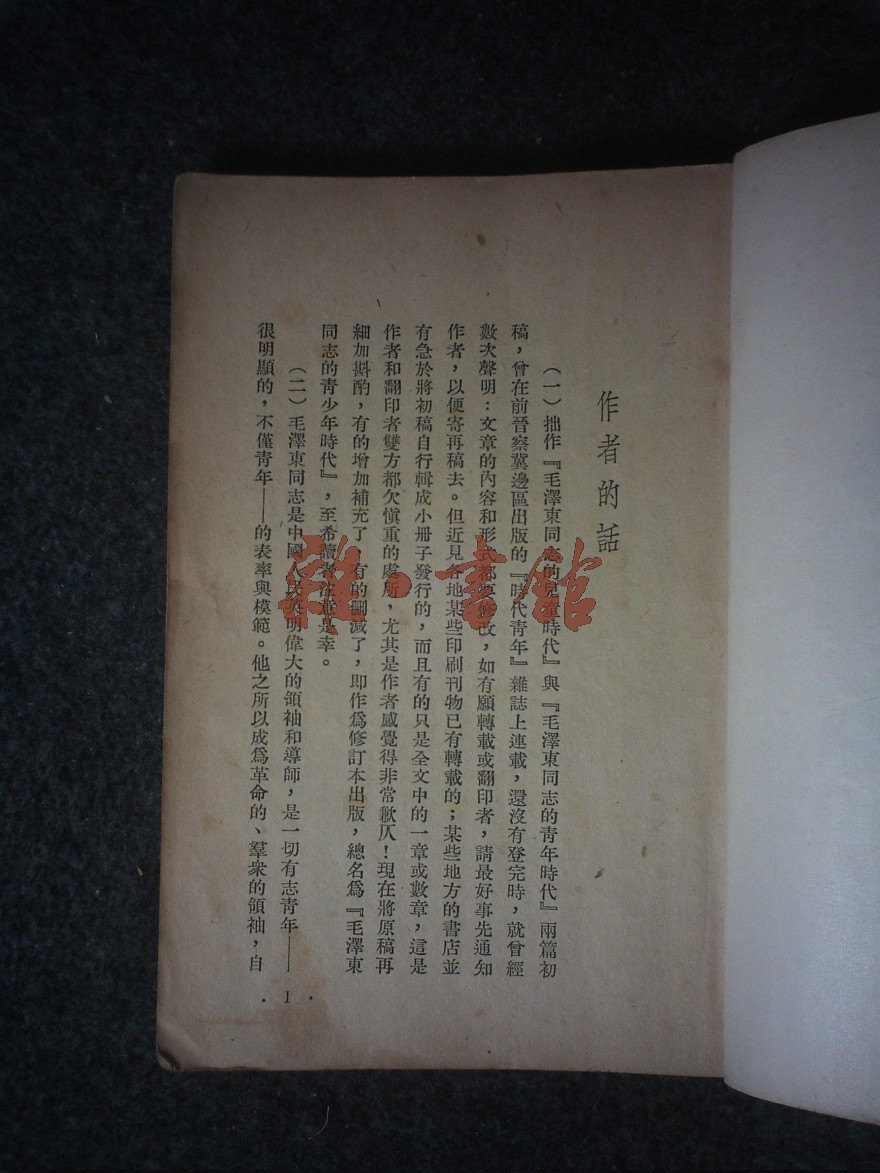 作者的話
(一)拙作『毛澤東同志的兒童時代』與『毛澤東同志的青年時代』兩篇初
稿，曾在前晉察冀邊區出版的『時代青年』雜誌上連載，還沒有登完時，就曾經
數次聲明：文章的內容和形式都要修改，如有願轉載或翻印者，請最好事先通知
作者，以便寄再稿去。但近見各地某些印刷刊物已有轉載的；某些地方的書店並
有急於將初稿自行輯成小冊子發行的，而且有的只是全文中的一章或數章，這是
作者和翻印者雙方都欠慎重的處所，尤其是作者感覺得非常歉仄！現在將原稿再
細加斟酌，有的增加補充了，有的刪減了，即作為修訂本出版，總名為『毛澤東
同志的青少年時代』，至希讀者注意是幸。
(二)毛澤東同志是中國人民英明偉大的領袖和導師，是一切有志青年——
很明顯的，不僅青年——的表率與模範。他之所以成為革命的、羣衆的領袖，自
· 1 ·
雜·書館